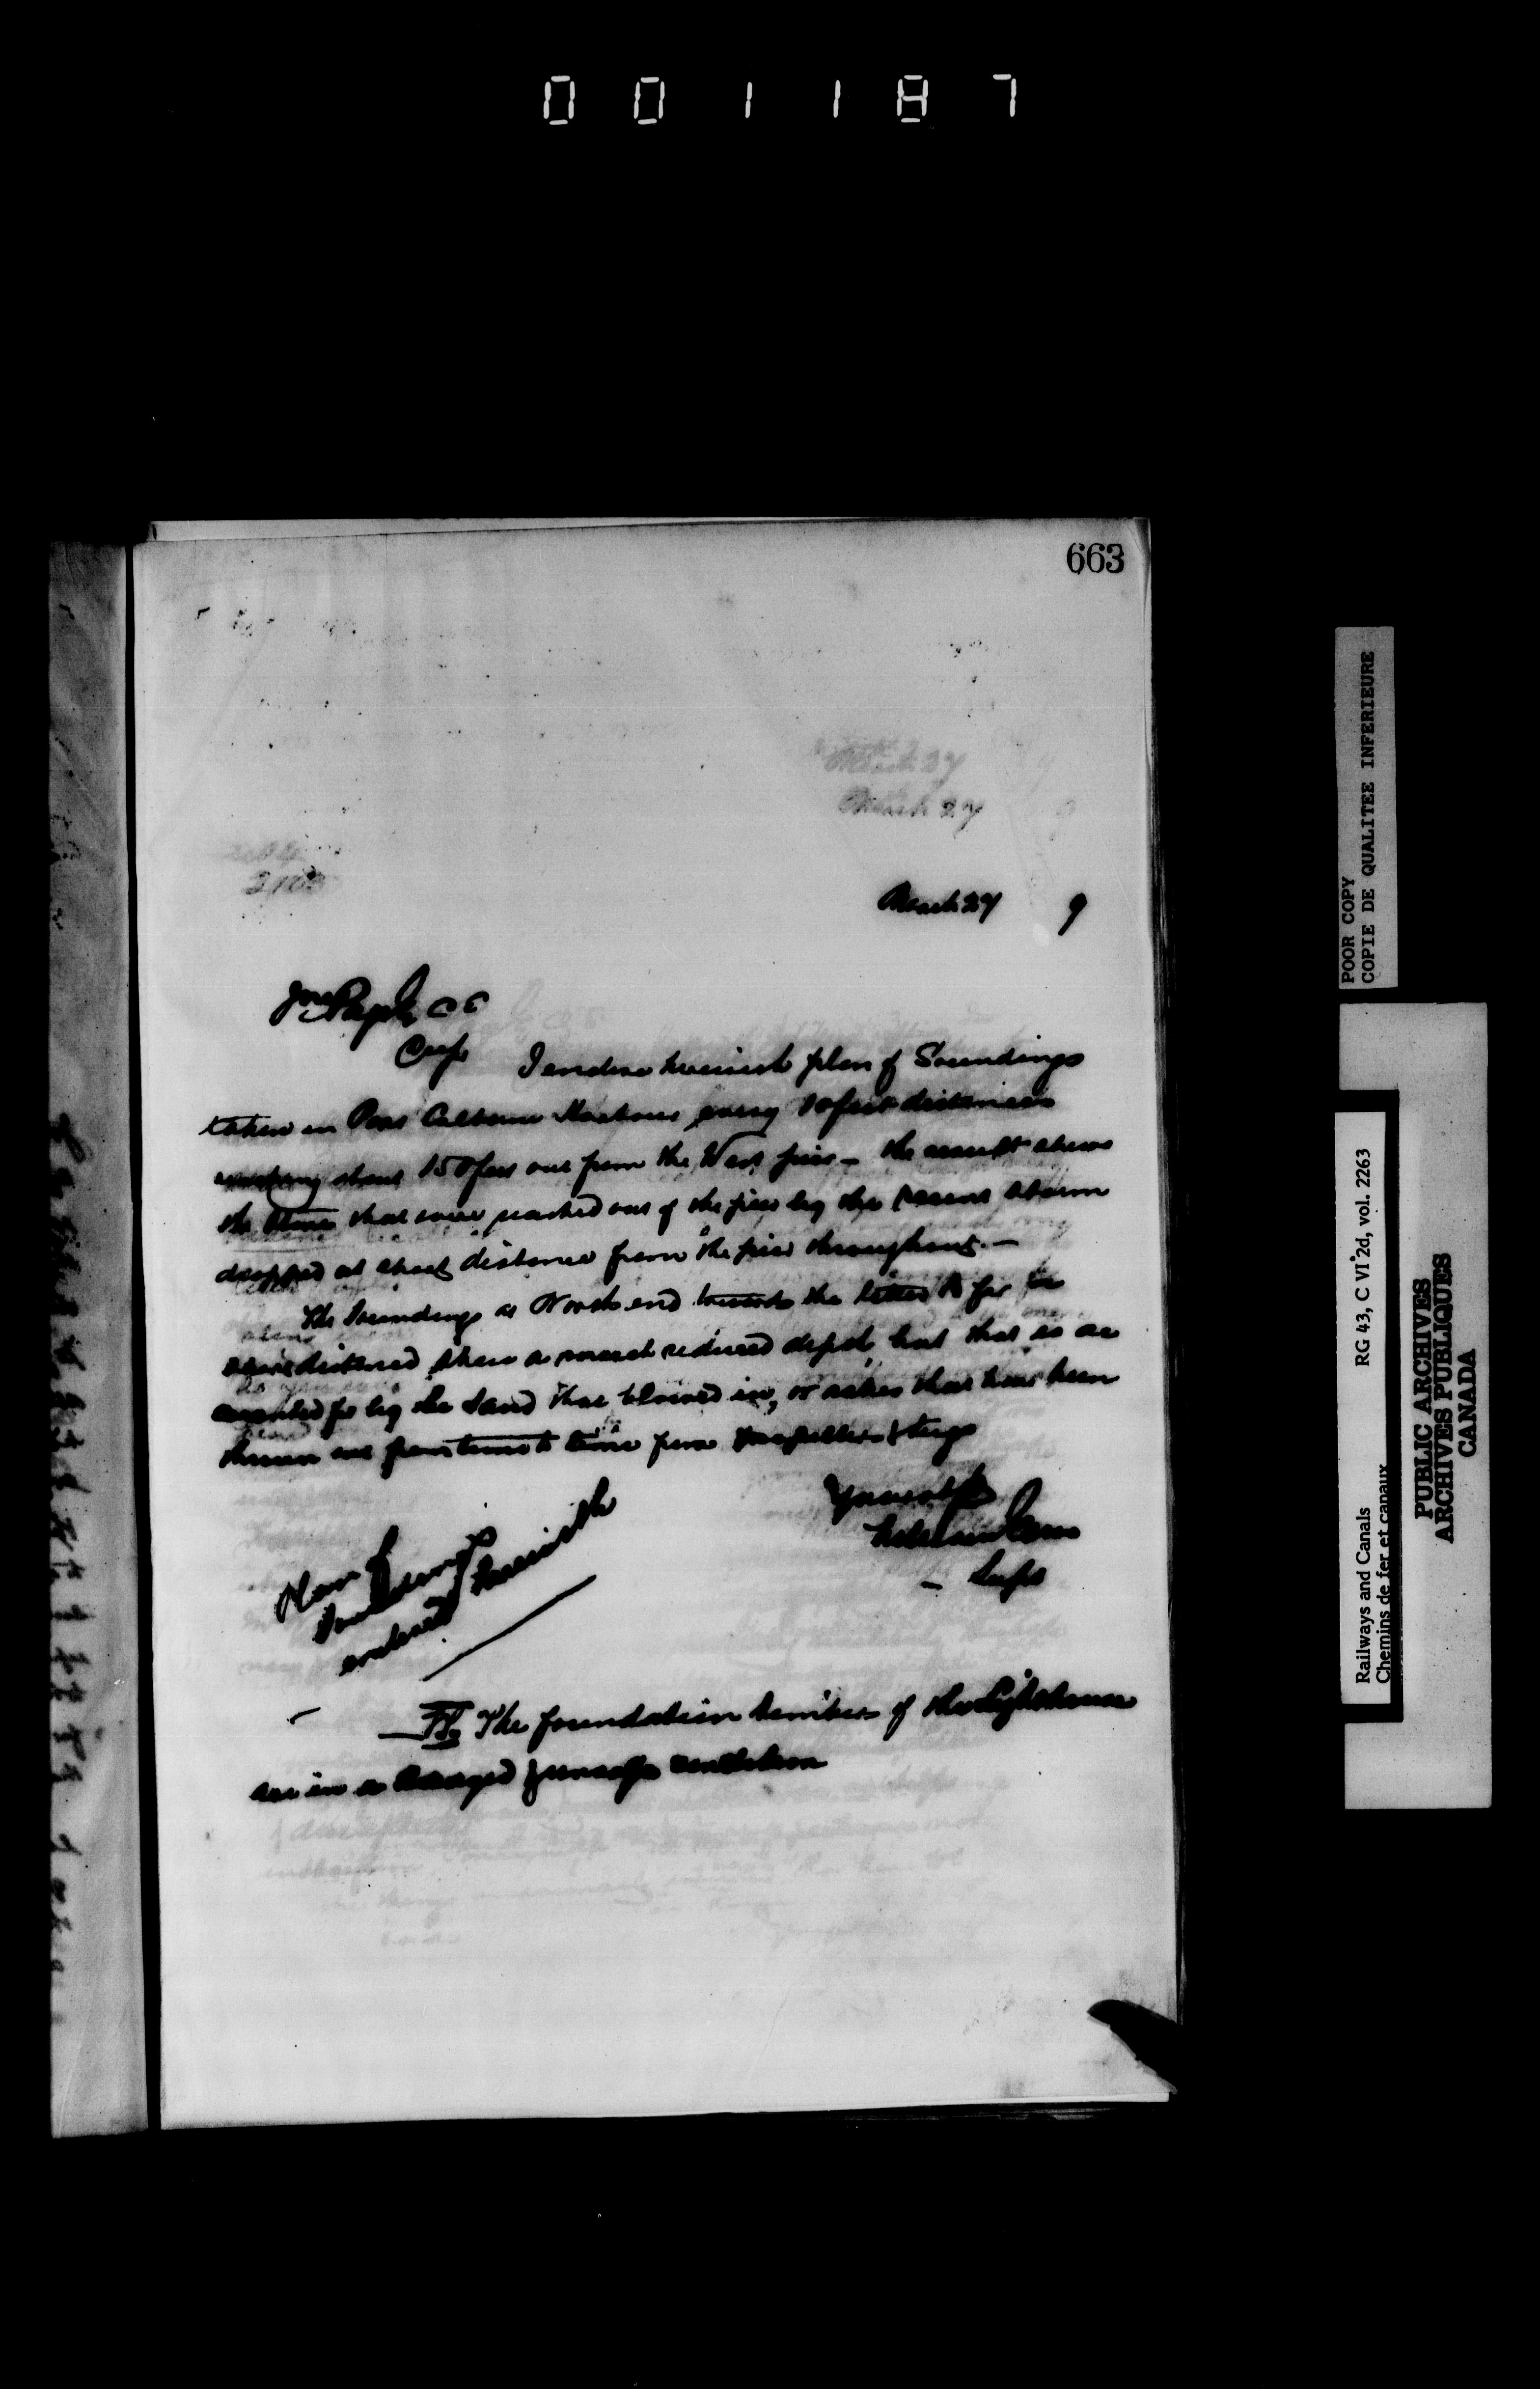 001187
663
March 27
March 27
March 27 9
Jno Page CE
I enclose herewith plan of Soundings
taken in Port Colborne Harbour every 10 feet distances
about 150 feet out from the West pier - the result shews
the stone that were washed out of the pier by the recent storm
dropped at short distance from the pier throughout. -
The Soundings at North end towards the letter A for
distance shew a much reduced depth, but that is ac
counted for by the Sand that blowed in, or ashes that have been
thrown out from time to time from propellers & tugs
Plan of
Soundings
enclosed herewith
Supt
The foundation timbers of the Lighthouse
are in a damaged & unsafe condition
POOR COPY
COPIE DE QUALITEE INFERIEURE
Railways and Canals RG 43, C VI 2d, vol. 2263
Chemins de fer et canaux
PUBLIC ARCHIVES
ARCHIVES PUBLIQUES
CANADA